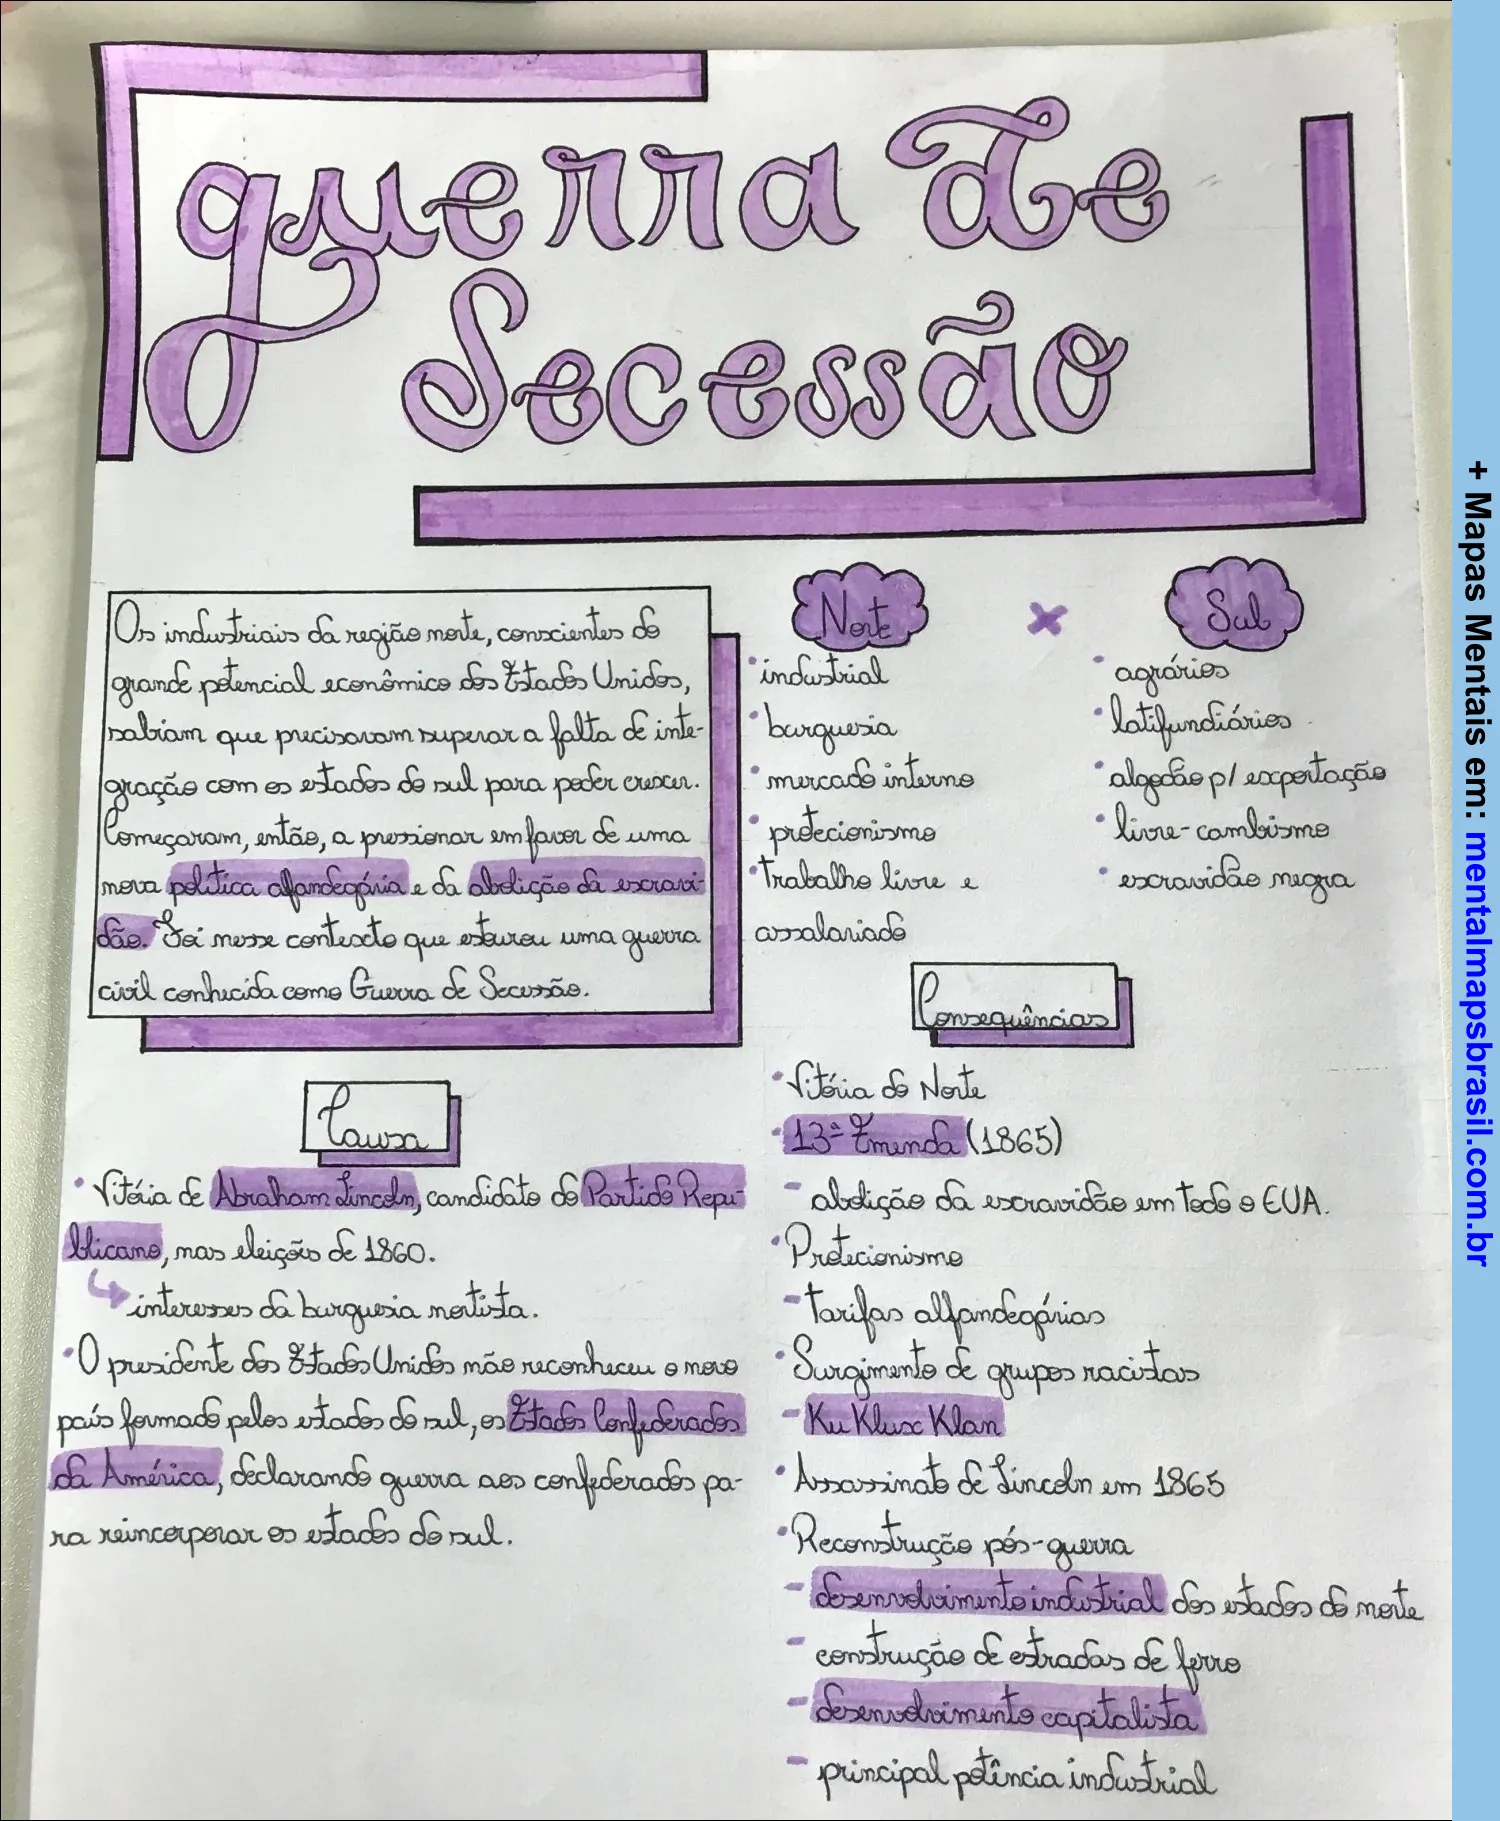 guerra de
Secessão
Os industriais da região norte, conscientes do
grande potencial econômico dos Estados Unidos,
sabiam que precisavam superar a falta de inte-
gração com os estados do sul para poder crescer.
Começaram, então, a pressionar em favor de uma
nova política alfandegária e da abolição da escravi-
dão. Foi nesse contexto que estourou uma guerra
civil conhecida como Guerra de Secessão.
Causa
• Vitória de Abraham Lincoln, candidato do Partido Repu-
blicano, nas eleições de 1860.
interesses da burguesia nortista.
• O presidente dos Estados Unidos não reconheceu o novo
país formado pelos estados do sul, os Estados Confederados
da América, declarando guerra aos confederados pa-
ra reincorporar os estados do sul.
Norte x Sul
• industrial
• burguesia
• mercado interno
• protecionismo
• Trabalho livre e
assalariado
• agrários
• latifundiários
• algodão p/ exportação
• livre-cambismo
• escravidão negra
Consequências
• Vitória do Norte
• 13ª Emenda (1865)
- abolição da escravidão em todo o EUA.
• Protecionismo
- Tarifas alfandegárias
• Surgimento de grupos racistas
- Ku Klux Klan
• Assassinato de Lincoln em 1865
• Reconstrução pós-guerra
- desenvolvimento industrial dos estados do norte
- construção de estradas de ferro
- desenvolvimento capitalista
- principal potência industrial
+ Mapas Mentais em: mentalmapsbrasil.com.br